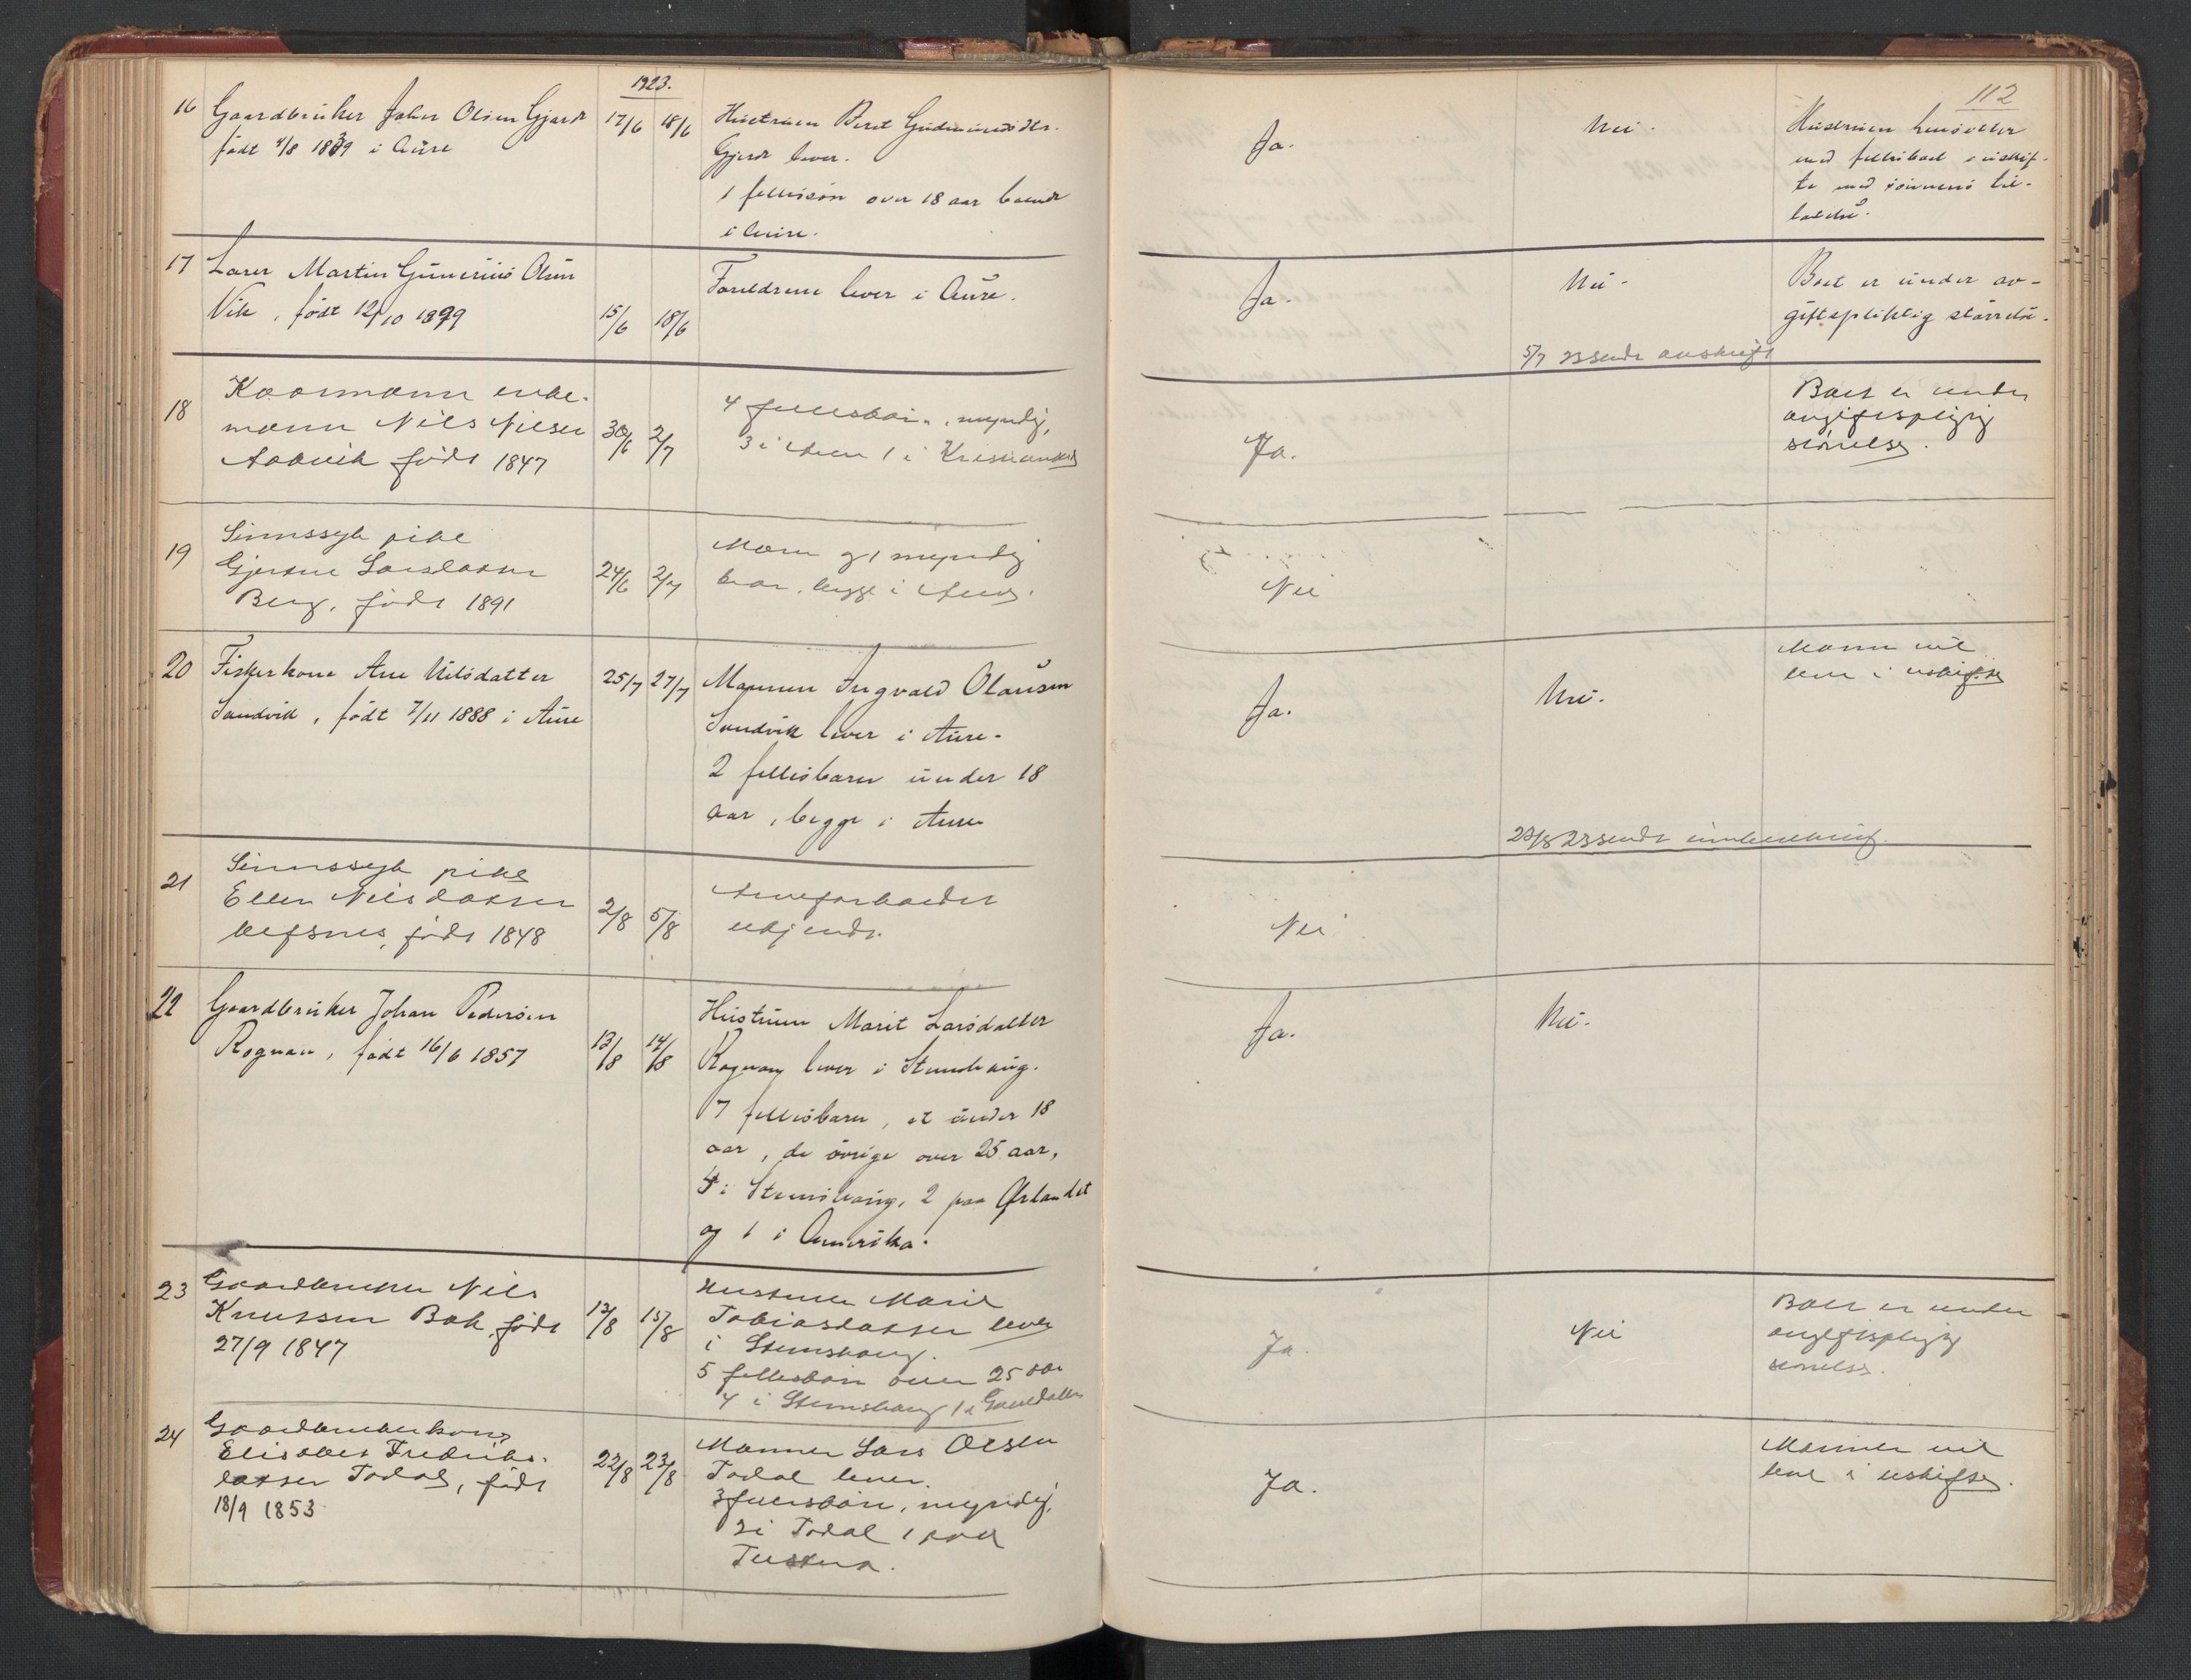 112
1923.
16 Gaardbruker Johan Olsen Gjerde 17/6 18/6 Hustruen Beret Gudmundsdtr.
født 4/8 1839 i Aure
Gjerde lever.
1 fellessøn over 18 aar boende
i Aure.
Ja.
Nei.
Hustruen hensitter
med fellesboet i uskif-
te med sønnens til-
ladelse.
17 Lars Martin Gunerius Olsen
Vik, født 12/10 1899 15/6 18/6
Foreldrene lever i Aure.
Ja.
Nei.
Boet er under av-
giftspliktig størrelse.
5/7 23 sendt avskrift
18 Kaarmann enke-
mann Nils Nilsen
Aakvik født 1847 30/6 2/7
4 fellesbørn, myndig,
3 i Aure 1 i Kristiansund
Ja.
Boet er under
avgiftspligtig
størrelse.
19 Sinnssyk pike
Gjertine Larsdatter
Berg, født 1891 24/6 2/7
Moren og 1 myndig
bror, begge i Aure.
Nei
20 Fiskerkone Ane Nilsdatter 25/7 27/7
Sandvik, født 7/11 1888 i Aure
Mannen Ingvald Olausen
Sandvik lever i Aure.
2 fellesbarn under 18
aar, begge i Aure
Ja.
Nei.
Mannen vil
leve i uskifte
23/8 23 sendt innberetning.
21 Sinnssyk pike
Ellen Nilsdatter
født 1848 2/8 5/8
Arveforholdet
ukjendt.
Nei
22 Gaardbruker Johan Pedersen
Rognan, født 16/6 1857 13/8 14/8
Hustruen Marit Larsdatter
Rognan lever i Stemshaug.
7 fellesbarn, et under 18
aar, de øvrige over 25 aar,
4 i Stemshaug, 2 paa Ørlandet
og 1 i Amerika.
Ja.
Nei.
23 Gaardbruker Nils
Knutsen Bak født 13/8 15/8
27/9 1847
Hustruen Marit
Tobiasdatter lever
i Stemshaug.
5 fellesbørn over 25 aar
4 i Stemshaug 1 i
Ja.
Nei
Boet er under
avgiftspligtig
størrelse.
24 Gaardbrukerkone
Elisabet Fredriks-
datter Todal, født 22/8 23/8
18/9 1853
Mannen Lars Olsen
Todal lever.
3 fellesbørn, myndig,
2 i Todal 1 paa
Tustna.
Ja.
Mannen vil
leve i uskifte.